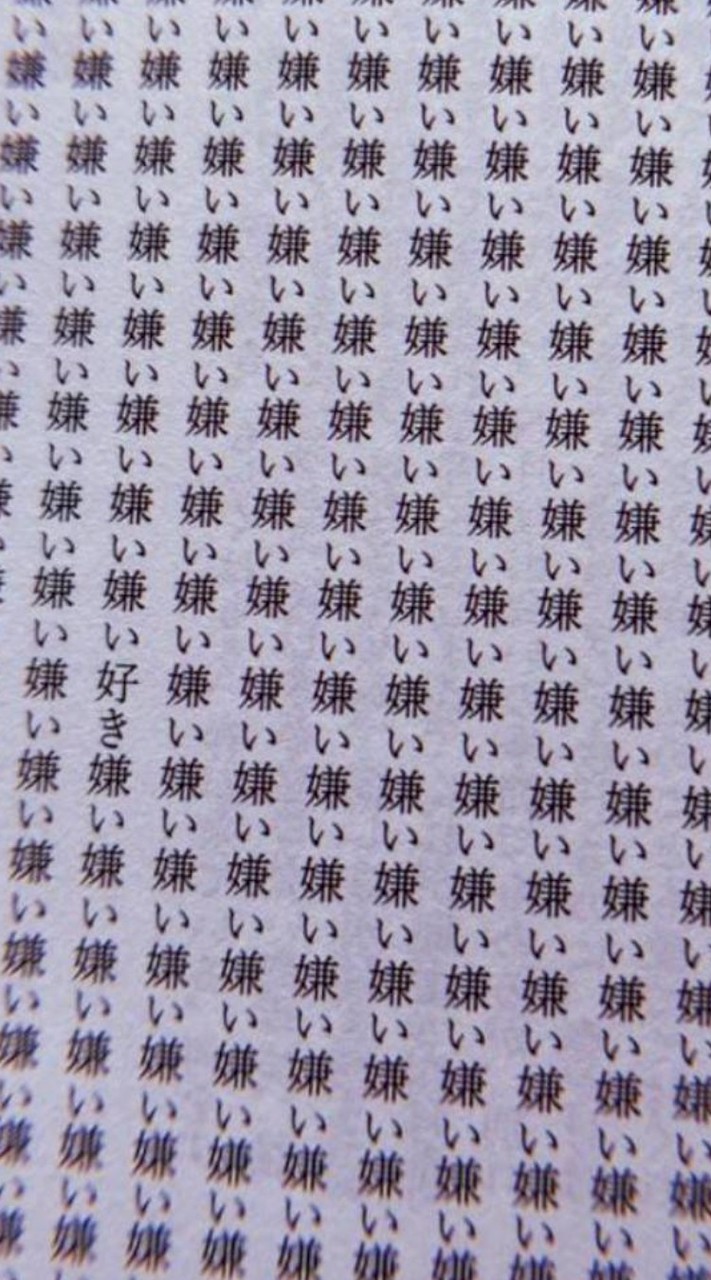 い嫌い嫌い嫌い嫌い嫌い嫌い嫌い嫌い嫌い嫌い嫌い嫌い嫌い
い嫌い嫌い嫌い嫌い嫌い嫌い嫌い嫌い嫌い嫌い嫌い嫌い嫌い
い嫌い嫌い嫌い嫌い嫌い嫌い嫌い嫌い嫌い嫌い嫌い嫌い嫌い嫌
い嫌い嫌い嫌い嫌い嫌い嫌い嫌い嫌い嫌い嫌い嫌い嫌い嫌い嫌
い嫌い嫌い嫌い嫌い嫌い嫌い嫌い嫌い嫌い嫌い嫌い嫌い嫌い嫌
い嫌い嫌い嫌い嫌い嫌い嫌い嫌い嫌い嫌い嫌い嫌い嫌い嫌い嫌
い嫌い嫌い嫌い嫌い嫌い嫌い嫌い嫌い嫌い嫌い嫌い嫌い嫌い嫌
い嫌い嫌い嫌い嫌い嫌い嫌い嫌い好き嫌い嫌い嫌い嫌い嫌い嫌
い嫌い嫌い嫌い嫌い嫌い嫌い嫌い嫌い嫌い嫌い嫌い嫌い嫌い嫌
い嫌い嫌い嫌い嫌い